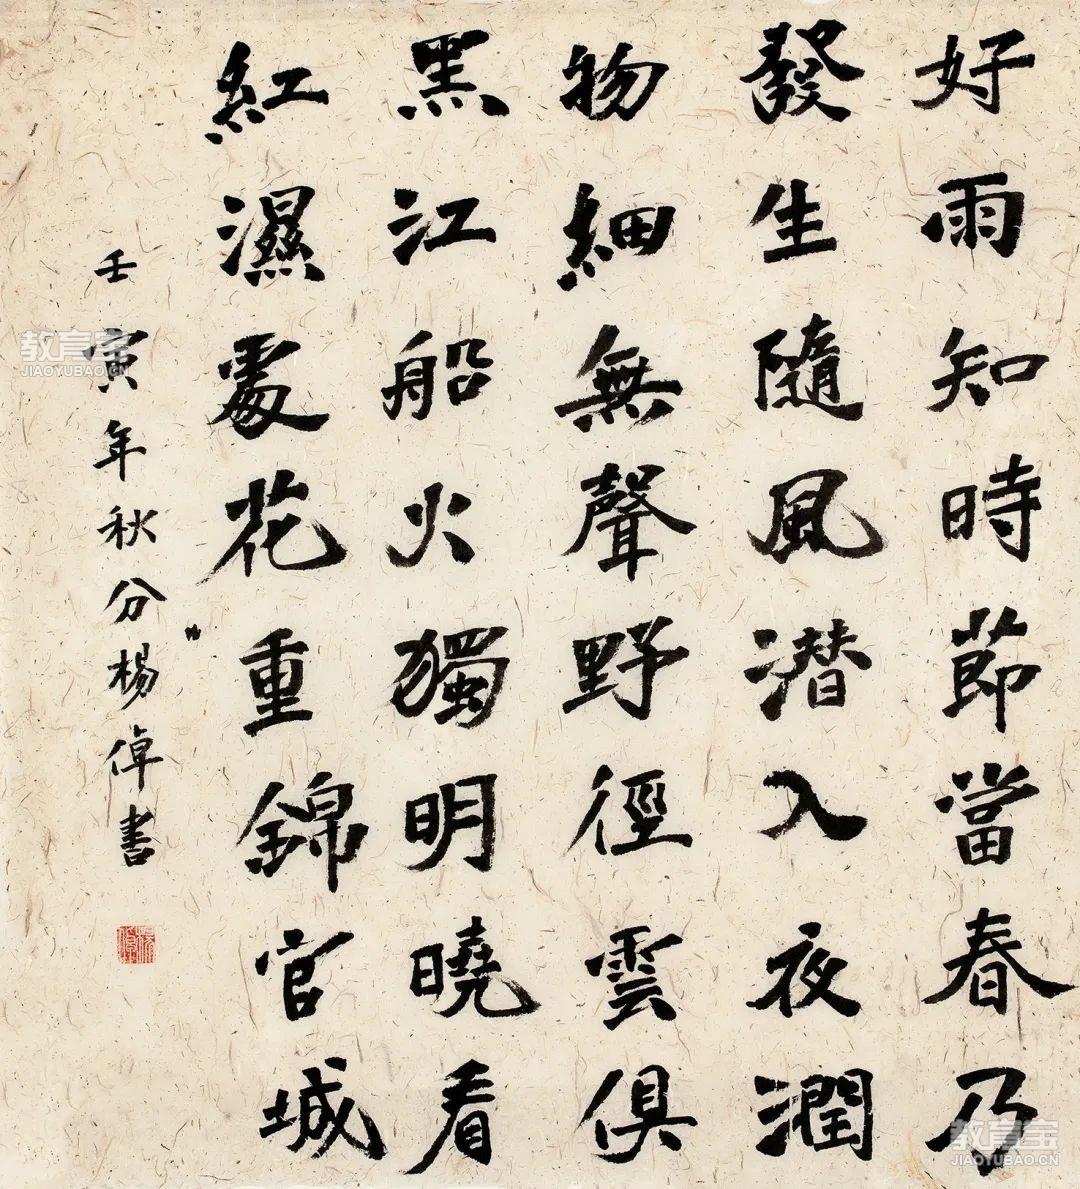 好雨知時節當春乃
發生隨風潜入夜潤
物細無聲野徑雲俱
黑江船火獨明曉看
紅濕處花重錦官城
壬寅年秋分楊倬書
教育宝
JIAOYUBAO.CN
教育宝
JIAOYUBAO.CN